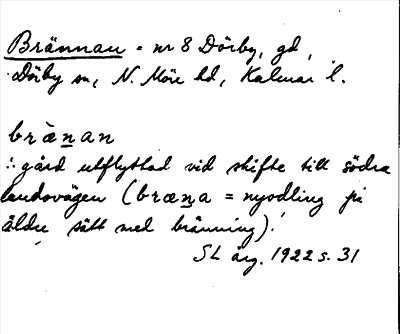 Brännan = nr 8 Dörby, gd,
Dörby sn, N. Möre hd, Kalmar l.
bræ̀nan
∴ gård utflyttad vid skifte till södra
landsvägen (bræna = nyodling på
äldre sätt med bränning).
SL årg. 1922 s. 31